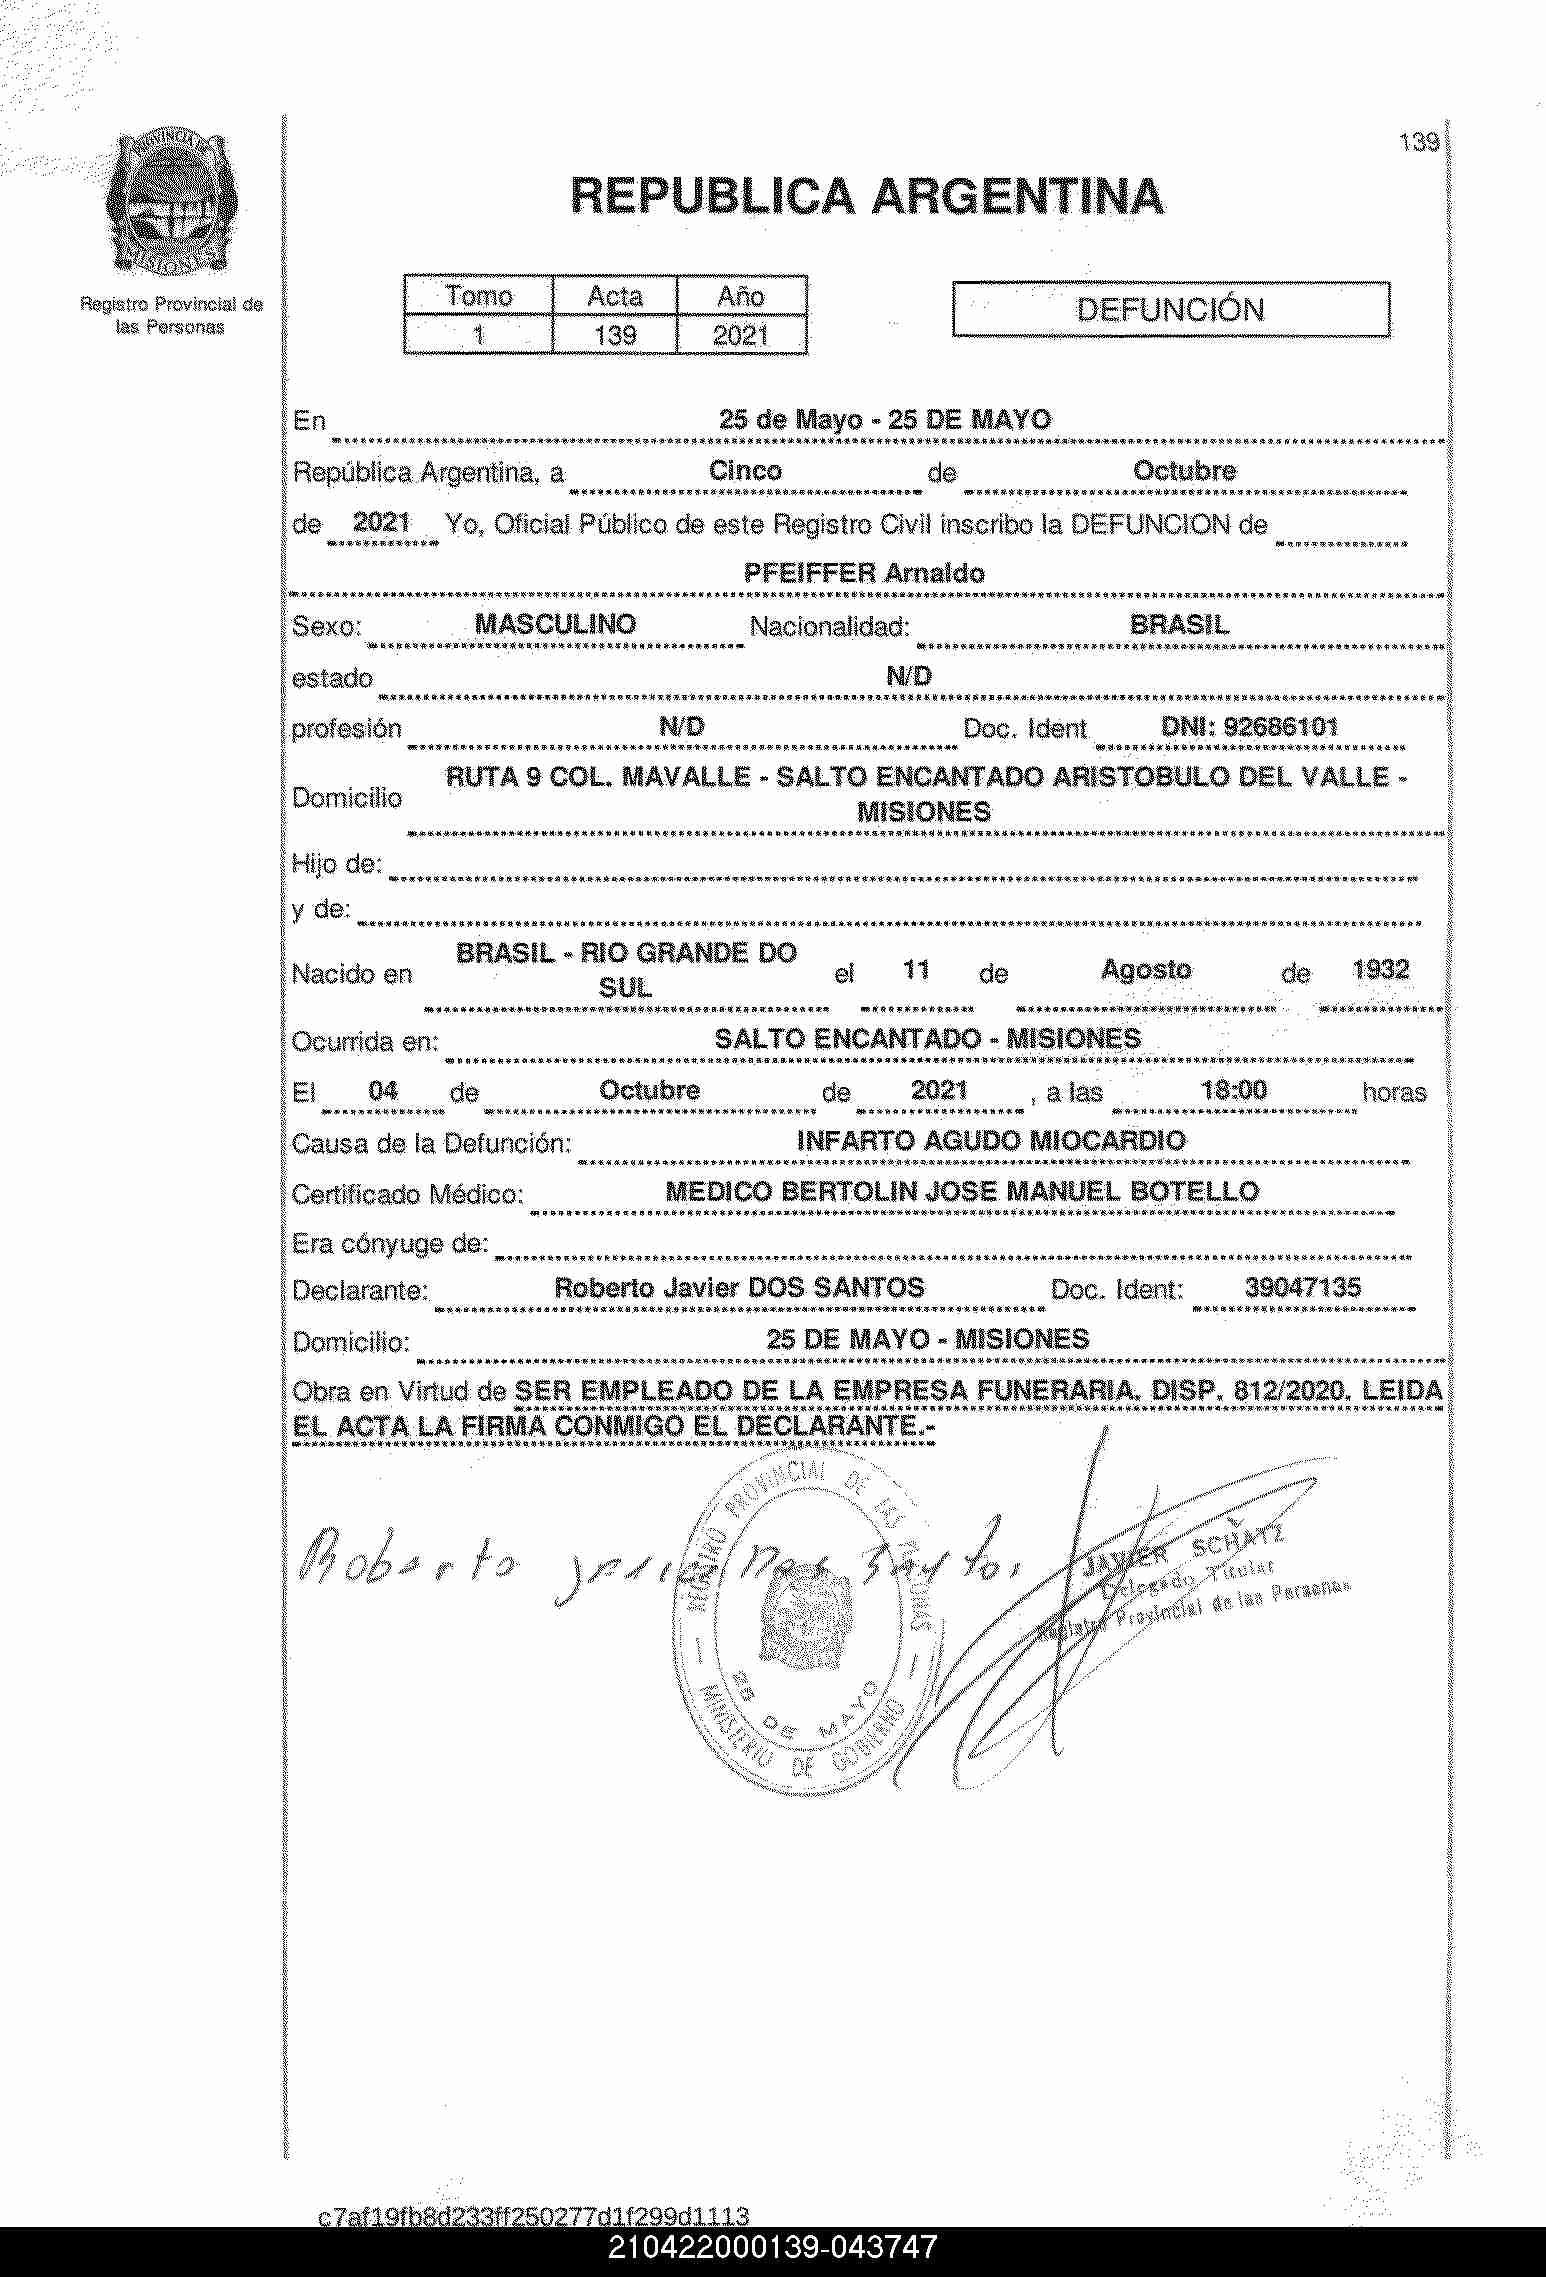 139
REPUBLICA ARGENTINA
Registro Provincial de
las Personas
Tomo Acta Año
1 139 2021
DEFUNCIÓN
En 25 de Mayo - 25 DE MAYO
República Argentina, a Cinco de Octubre
de 2021 Yo, Oficial Público de este Registro Civil inscribo la DEFUNCION de
PFEIFFER Arnaldo
Sexo: MASCULINO Nacionalidad: BRASIL
estado N/D
profesión N/D Doc. Ident DNI: 92686101
RUTA 9 COL. MAVALLE - SALTO ENCANTADO ARISTOBULO DEL VALLE -
Domicilio MISIONES
Hijo de:
y de:
BRASIL - RIO GRANDE DO
Nacido en SUL el 11 de Agosto de 1932
Ocurrida en: SALTO ENCANTADO - MISIONES
El 04 de Octubre de 2021 , a las 18:00 horas
Causa de la Defunción: INFARTO AGUDO MIOCARDIO
Certificado Médico: MEDICO BERTOLIN JOSE MANUEL BOTELLO
Era cónyuge de:
Declarante: Roberto Javier DOS SANTOS Doc. Ident: 39047135
Domicilio: 25 DE MAYO - MISIONES
Obra en Virtud de SER EMPLEADO DE LA EMPRESA FUNERARIA. DISP. 812/2020. LEIDA
EL ACTA LA FIRMA CONMIGO EL DECLARANTE.-
REGISTRO PROVINCIAL DE LAS PERSONAS
25 DE MAYO
MINISTERIO DE GOBIERNO
Roberto
JAVIER SCHATZ
Delegado Titular
Registro Provincial de las Personas
c7af19fb8d233ff250277d1f299d1113
210422000139-043747